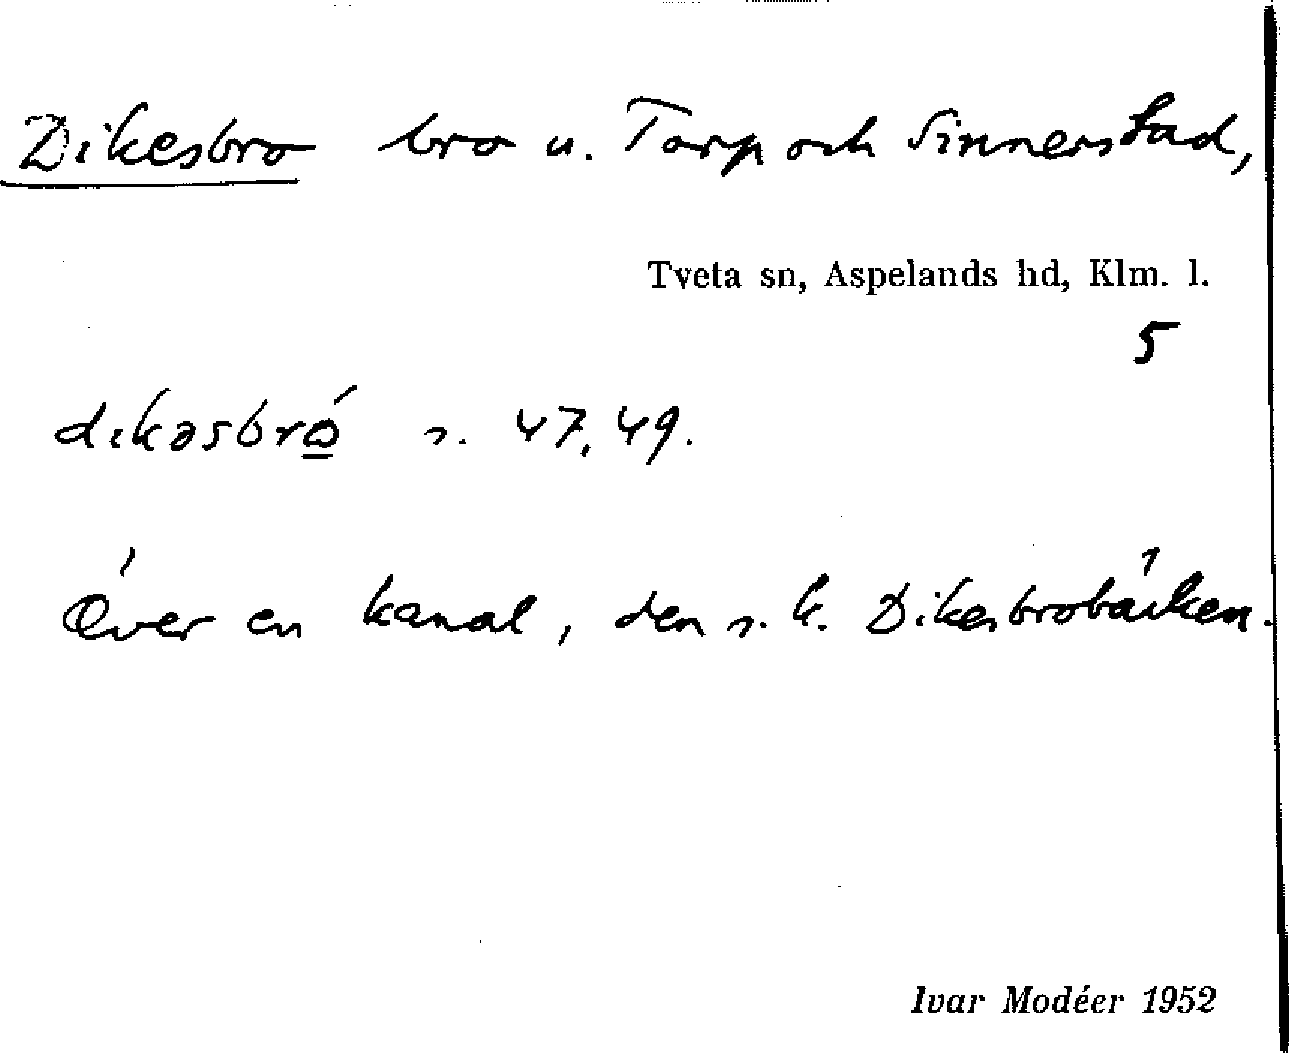 Dikesbro bro u. Torp och Sinnerstad,
Tveta sn, Aspelands hd, Klm. l.
5
dikəsbró s. 47, 49.
Över en kanal, den s. k. Dikesbrobäcken.
Ivar Modéer 1952